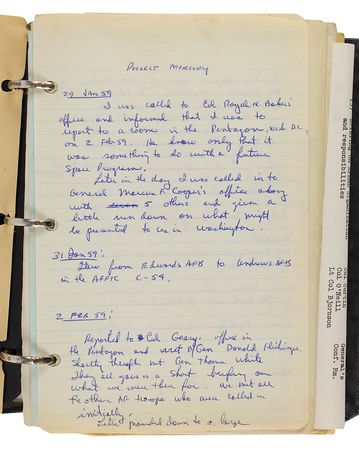 PROJECT MERCURY
29 JAN 59
I was called to Col Royal N. Baker's
office and informed that I was to
report to a room in the Pentagon, Wash DC,
on 2 FEB 59. He knew only that it
was something to do with a future
Space Program.
Later in the day I was called in to
General Marcus F. Cooper's office along
with 5 others and given a
little run down on what might
be presented to us in Washington.
31 JAN 59:
Flew from Edwards AFB to Andrews AFB
in the AFFTC C-54.
2 FEB 59:
Reported to Col Geary's office in
the Pentagon and met B/Gen Donald Flickinger.
Shortly thereafter met Gen Thomas White
They all gave us a short briefing on
what we were there for. We met all
the other AF troops who were called in
initially.
Later pounded down to a large
and responsibilities
General's
Conf. Rm.
Col Curtin
Col O'Neill
Lt Col Bjornson